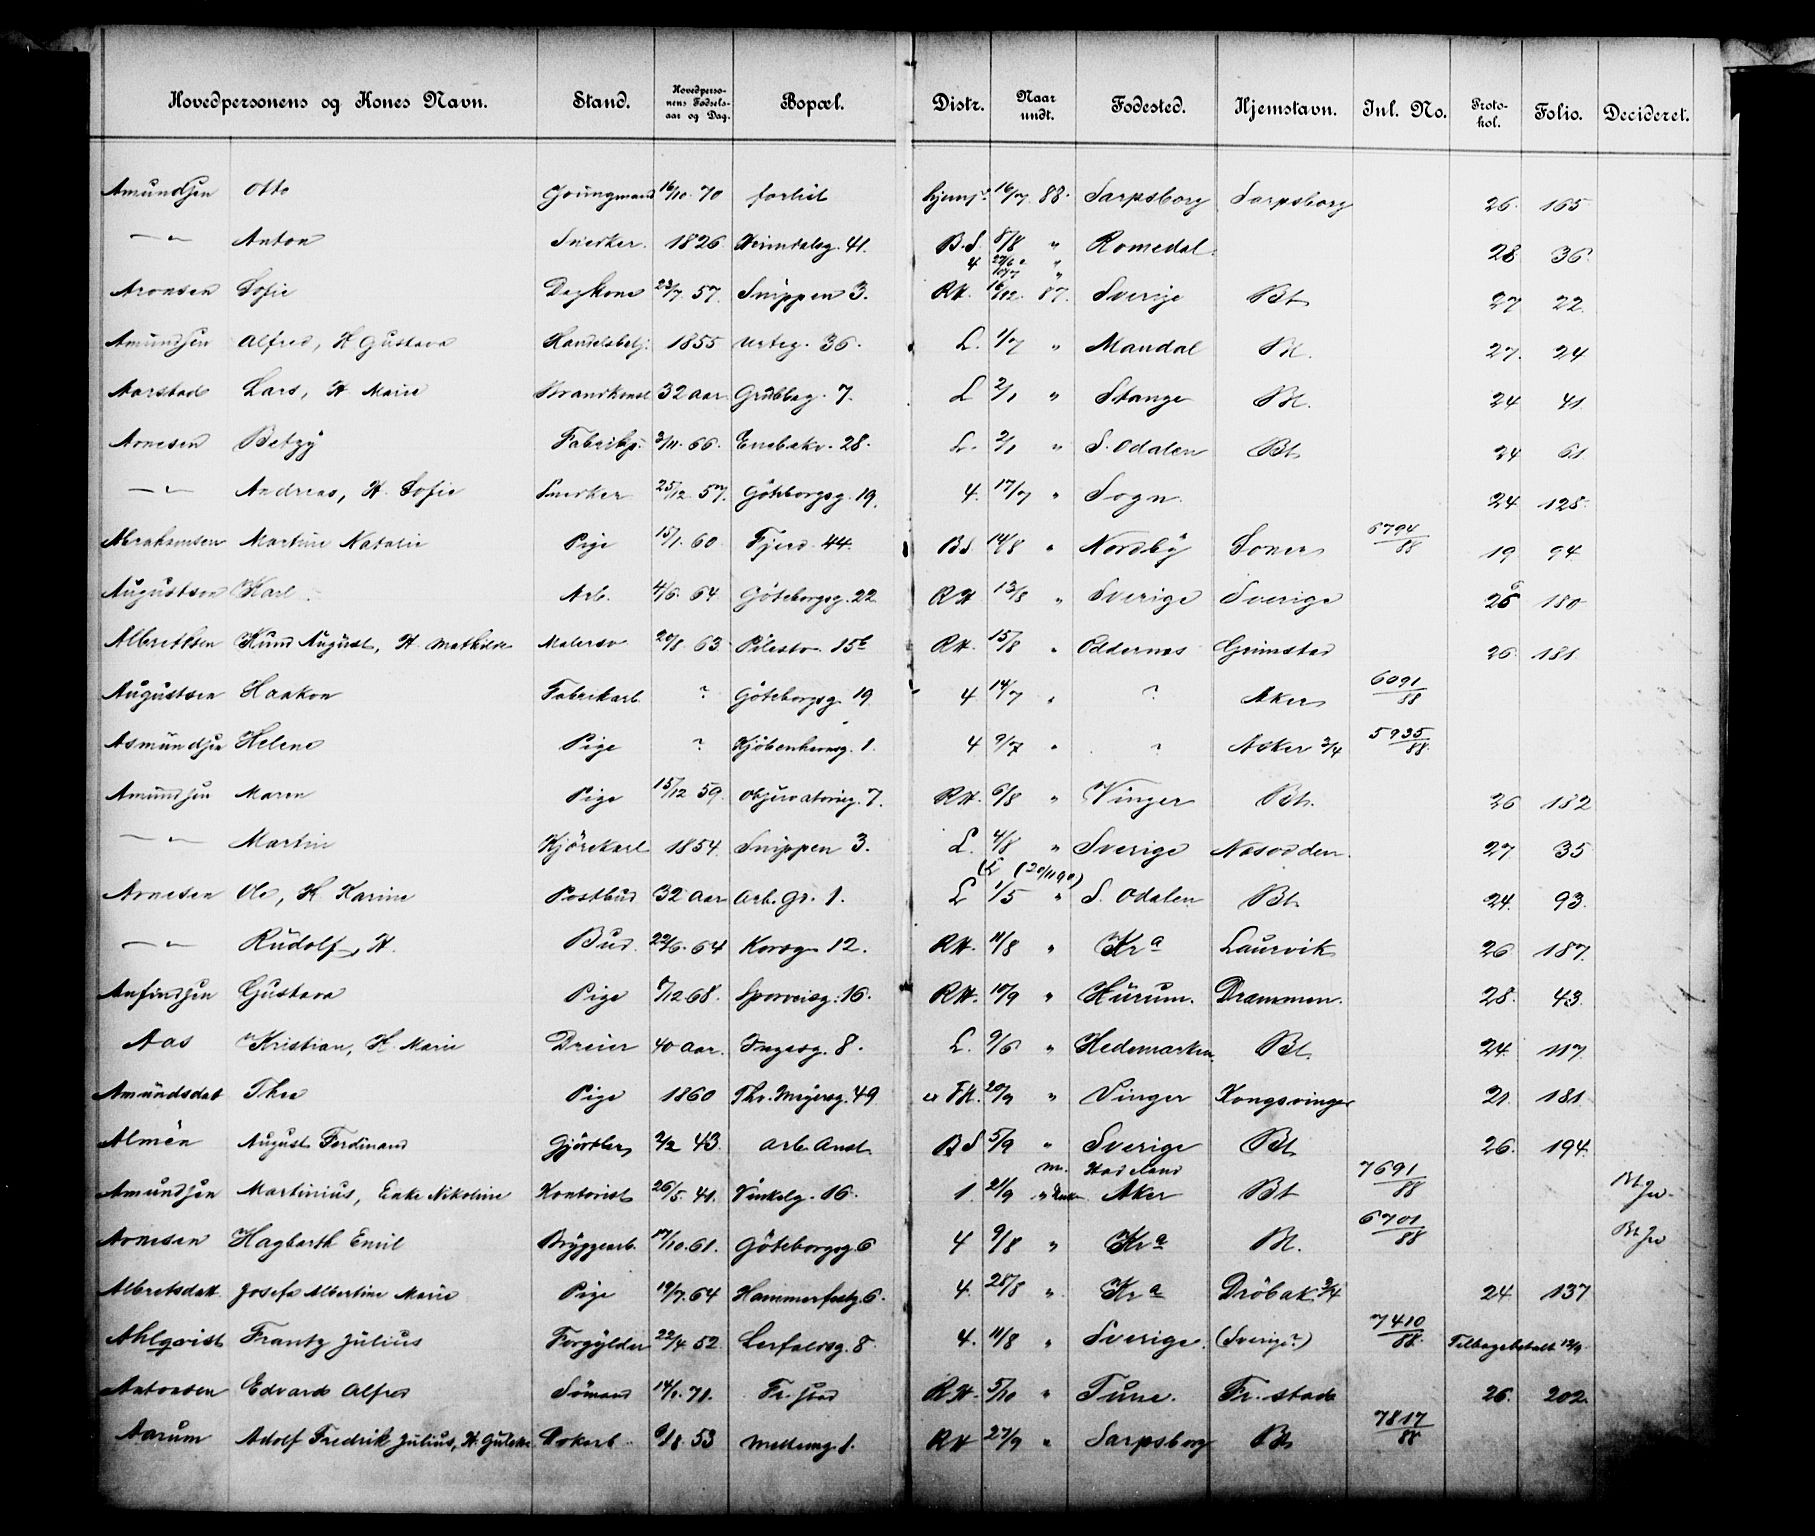 Hovedpersonens og Kones Navn. Stand. Hovedpersonens Fødselsaar og Dag. Bopæl. Distr. Naar undt. Fødested. Hjemstavn. Inl. No. Protokol. Folio. Decideret.
Amundsen Otto 16/10 70 forlist 16/7 88. Sarpsborg Sarpsborg 26. 165
—〃— Anton Snedker. 1826 41. B.S. 8/8 〃 Romedal 28 36
4
Aronsen Sofie 23/7 57. Snippen 3. RH. 16/12. 87. Sverige Bt 27 22
Amundsen Alfred, H Gustava Handelsbetj. 1855 Urteg. 36. L. 1/7 〃 Mandal Bt. 27. 24
Aarstad Lars, H Marie Brandkonst 32 aar Grübbeg. 7. L 2/1 〃 Stange Bt. 24 41
Arnesen Betzy 3/11. 66. Enebakv. 28. L. 2/1 〃 S. Odalen Bt 24 61
—〃— Andreas, H. Sofie Snedker 25/12 57. Göteborgsg. 19. 4. 17/7 〃 Sogn. 24 128
Abrahamsen Martine Natalie Pige 15/1. 60. Fjerd. 44. BS 14/8 〃 Nordby Soner 6794/88 19 94
Augustson Karl Arb. 4/6. 64 Göteborgsg. 22 RH 13/8 〃 Sverige Sverige 26 180
Albrethsen Knud August, H. Mathilde Malersv 20/8. 63. Pilestr. 15b RH. 15/8 〃 Oddernes Grimstad 26. 181
Augustsen Haakon Fabrikarb. ? Göteborgsg. 19. 4 14/7 〃 ? Aker 6091/88
Asmundsen Helene Pige ? Kjöbenhavnsg. 1. 4 9/7 〃 ? Asker 3/4 5935/88.
Amundsen Maren Pige 15/12 59. Observatorieg. 7. RH. 6/8 〃 Vinger Bt. 26 182
—〃— Martin Kjörekarl 1854. Snippen 3. L. 4/8 〃 Sverige Nesodden. 27 35
(L (20/11 90)
Arnesen Ole, H. Karine Postbud 32 aar Arb. Gr. 1. L 1/5 〃 S. Odalen Bt. 24. 93.
—〃— Rudolf, H. Bud. 22/6. 64 Korsg. 12. RH. 11/8 〃 Kra Laurvik 26. 187.
Anfindsen Gustava Pige 8/12 68. Sporveisg. 16. RH. 10/9 〃 Hurum. Drammen. 28. 43.
Aas Kristian, H. Marie Dreier 40 aar. Ingesg. 8. L. 9/6 〃 Hedemarken Bt. 24. 117.
Amundsdat Thea Pige 1860 Thv. Meyersg. 49 FH. 20/9 〃 Vinger Kongsvinger 21. 181.
Almén August Ferdinand Gjörtler 2/2 43. Arb. Anst. BS 5/9 〃 Sverige Bt. 26. 194.
Hadeland
Amundsen Martinius, Enke Nikoline Kontorist 26/5. 41. Vinkelg. 16. 1. 21/9 〃 Aker Bt 7691/88 Bt
Arnesen Hagbarth Emil Bryggearb. 17/10. 61. Göteborgsg. 6 4 9/8 〃 Kra Bt. 6701/88 Bt
Albretsdatt. Josefa Albertine Marie Pige 19/7. 64 Hammerfestg. 6. 4. 28/8 〃 Kra Dröbak 3/4 24. 137
Ahlqvist Frantz Julius Forgylder 22/4 52. Lerfaldsg. 8. 4. 11/8 〃 Sverige. (Sverige?) 7410/88. Tilbagebetalt 12/9
Antonsen Edvard Alfred Sömand 14/1. 71. Fr. stad RH. 5/10 〃 Tune. Fr. stad 26. 202.
Aarum Adolf Fredrik Julius, H. 53 1. RH 27/9 〃 Sarpsborg Bt 7817/88